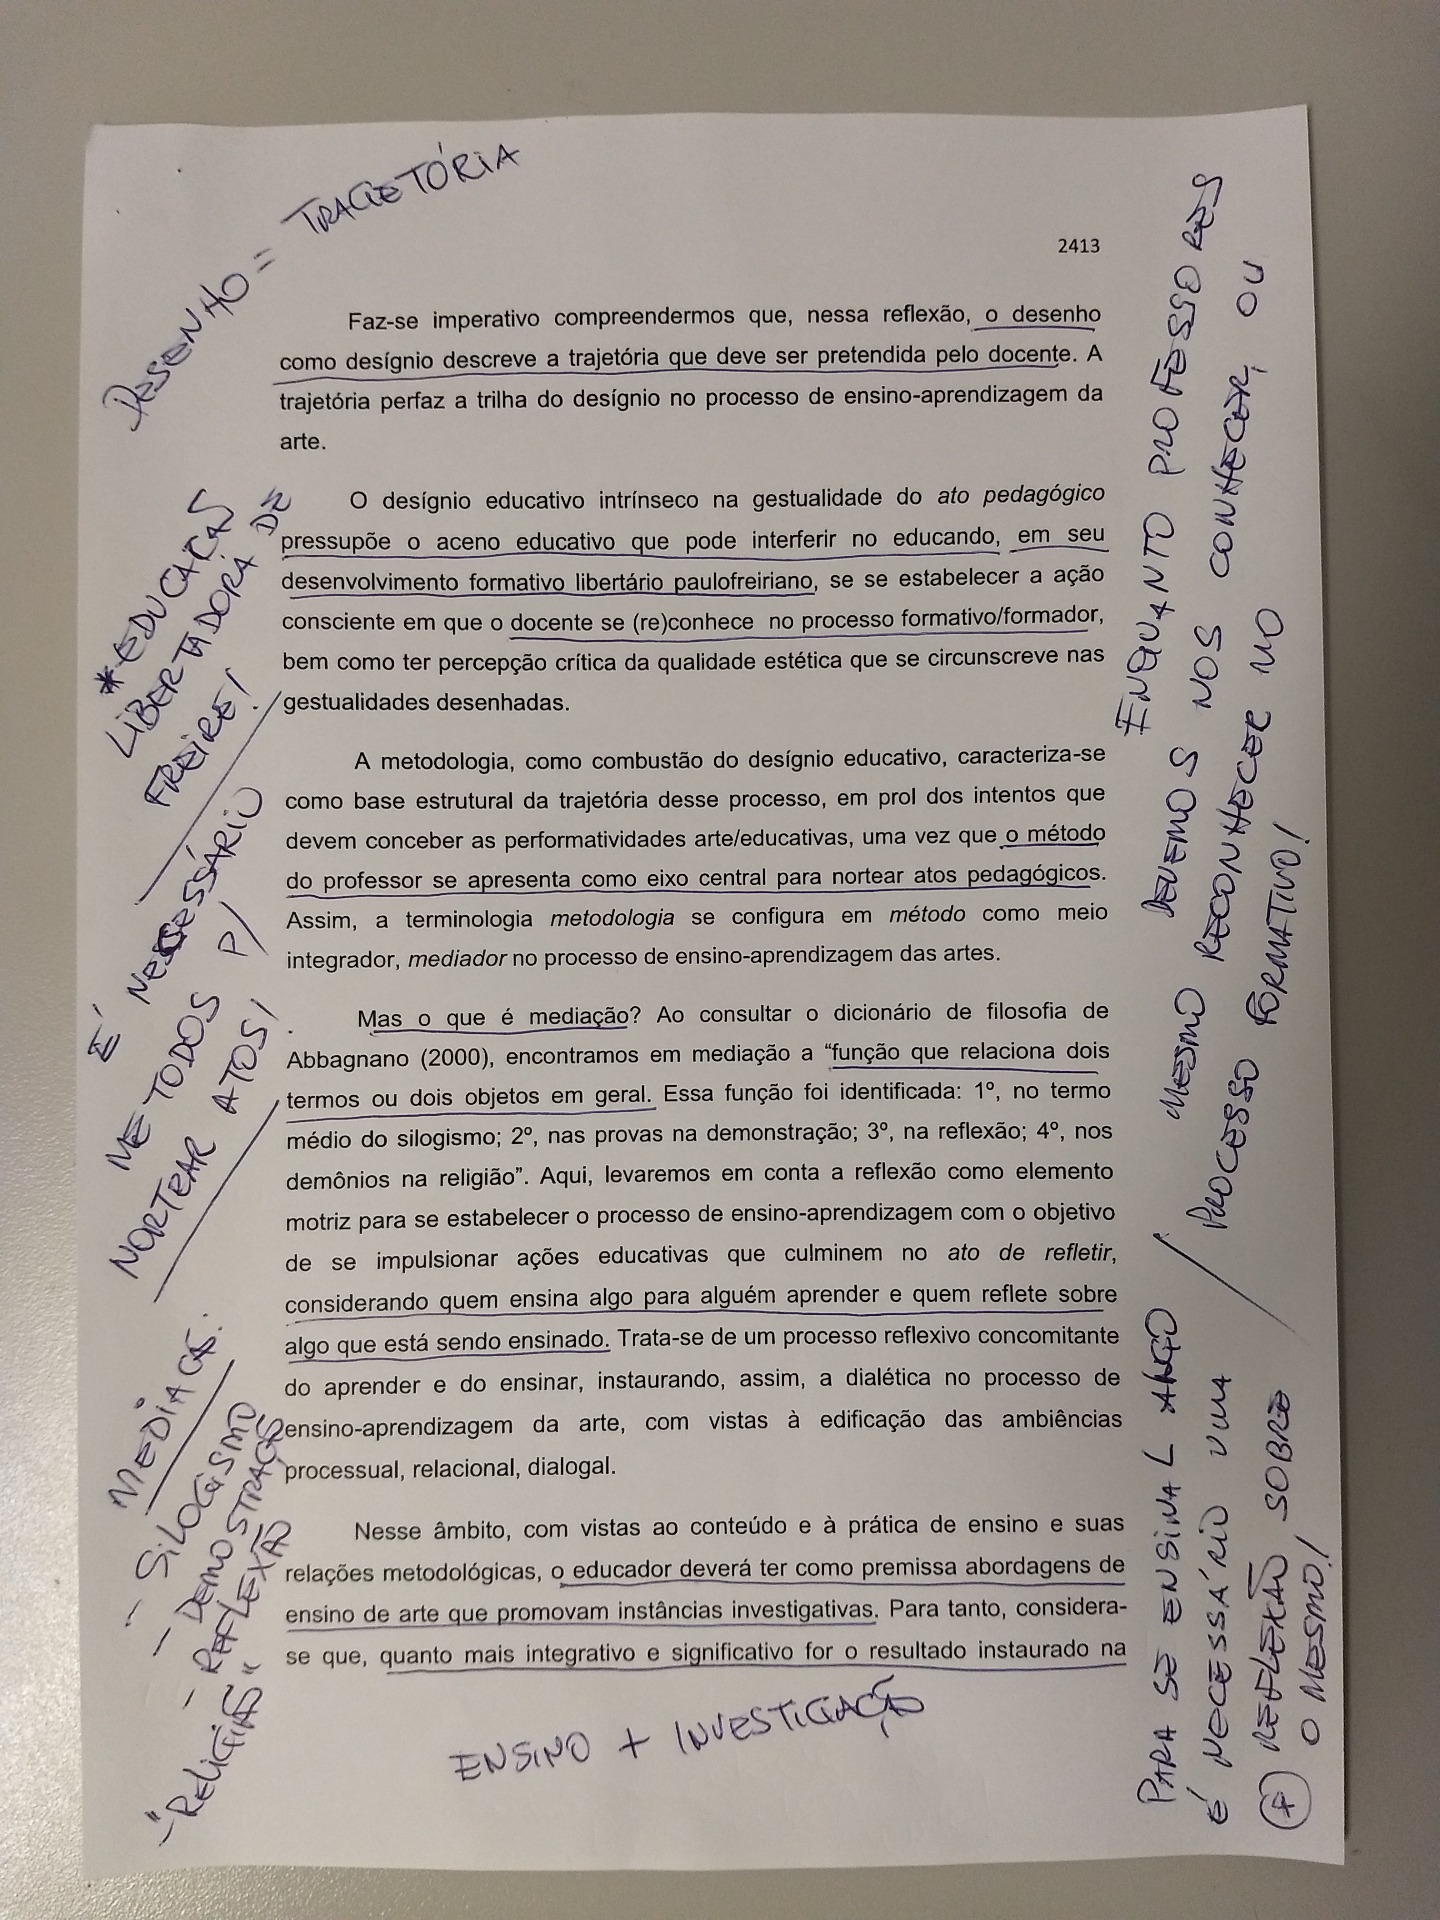 DESENHO = TRAGETÓRIA
2413
Faz-se imperativo compreendermos que, nessa reflexão, o desenho
como desígnio descreve a trajetória que deve ser pretendida pelo docente. A
trajetória perfaz a trilha do desígnio no processo de ensino-aprendizagem da
arte.
O desígnio educativo intrínseco na gestualidade do ato pedagógico
pressupõe o aceno educativo que pode interferir no educando, em seu
desenvolvimento formativo libertário paulofreiriano, se se estabelecer a ação
consciente em que o docente se (re)conhece no processo formativo/formador,
bem como ter percepção crítica da qualidade estética que se circunscreve nas
gestualidades desenhadas.
A metodologia, como combustão do desígnio educativo, caracteriza-se
como base estrutural da trajetória desse processo, em prol dos intentos que
devem conceber as performatividades arte/educativas, uma vez que o método
do professor se apresenta como eixo central para nortear atos pedagógicos.
Assim, a terminologia metodologia se configura em método como meio
integrador, mediador no processo de ensino-aprendizagem das artes.
Mas o que é mediação? Ao consultar o dicionário de filosofia de
Abbagnano (2000), encontramos em mediação a “função que relaciona dois
termos ou dois objetos em geral. Essa função foi identificada: 1º, no termo
médio do silogismo; 2º, nas provas na demonstração; 3º, na reflexão; 4º, nos
demônios na religião”. Aqui, levaremos em conta a reflexão como elemento
motriz para se estabelecer o processo de ensino-aprendizagem com o objetivo
de se impulsionar ações educativas que culminem no ato de refletir,
considerando quem ensina algo para alguém aprender e quem reflete sobre
algo que está sendo ensinado. Trata-se de um processo reflexivo concomitante
do aprender e do ensinar, instaurando, assim, a dialética no processo de
ensino-aprendizagem da arte, com vistas à edificação das ambiências
processual, relacional, dialogal.
Nesse âmbito, com vistas ao conteúdo e à prática de ensino e suas
relações metodológicas, o educador deverá ter como premissa abordagens de
ensino de arte que promovam instâncias investigativas. Para tanto, considera-
se que, quanto mais integrativo e significativo for o resultado instaurado na
*EDUCAÇÃO
LIBERTADORA DE
FREIRE!
É NECESSÁRIO
METODOS P/
NORTEAR ATOS!
MEDIAÇÃO:
- SILOGISMO
- DEMOSTRAÇÃO
- REFLEXÃO
- "RELIGIÃO"
ENSINO + INVESTIGAÇÃO
ENQUANTO PROFESSORES
DEVEMOS NOS CONHECER, OU
MESMO RECONHECER NO
PROCESSO FORMATIVO!
PARA SE ENSINAR ALGO
É NECESSÁRIO UMA
(+) REFLEXÃO SOBRE
O MESMO!